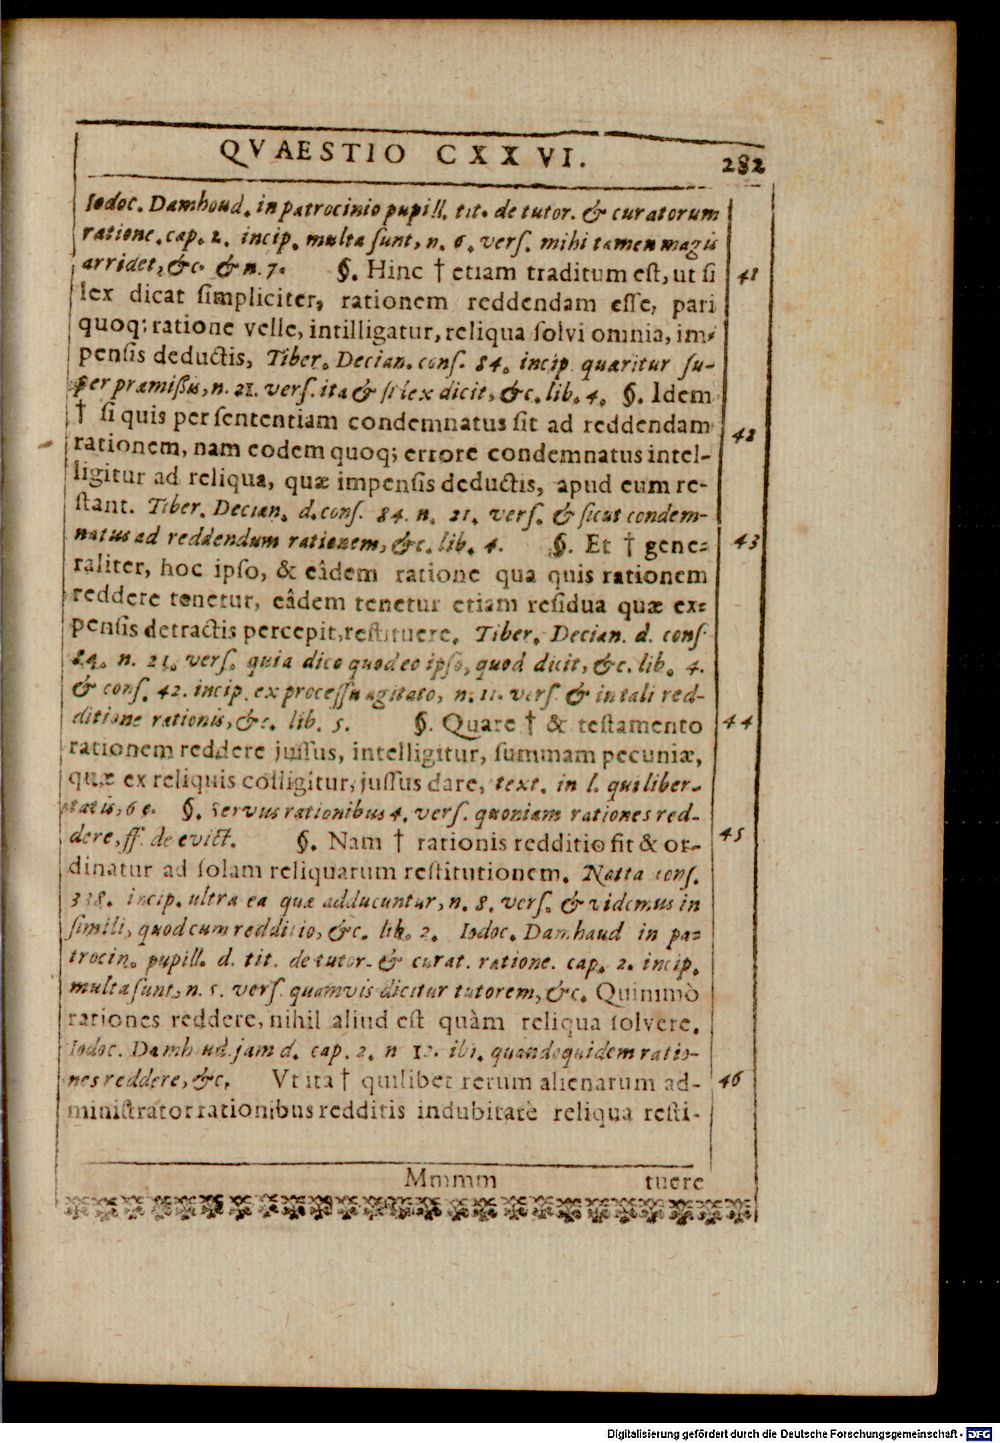 QVAESTIO CXXVI. 282
Iodoc. Damhoud. in patrocinio pupill. tit. de tutor. & curatorum
ratione. cap. 2. incip. multa sunt, n. 6. vers. mihi tamen magis
arridet, &c. & n. 7. §. Hinc † etiam traditum est, ut si 41
lex dicat simpliciter, rationem reddendam esse, pari
quoq; ratione velle, intilligatur, reliqua solvi omnia, im-
pensis deductis, Tiber. Decian. cons. 84. incip. quæritur su-
per præmissis, n. 21. vers. ita & si lex dicit, &c. lib. 4. §. Idem
† si quis per sententiam condemnatus sit ad reddendam 42
rationem, nam eodem quoq; errore condemnatus intel-
ligitur ad reliqua, quæ impensis deductis, apud eum re-
stant. Tiber. Decian. d. cons. 84. n. 21. vers. & sicut condem-
natus ad reddendum rationem, &c. lib. 4. §. Et † gene- 43
raliter, hoc ipso, & eâdem ratione qua quis rationem
reddere tenetur, eâdem tenetur etiam residua quæ ex-
pensis detractis percepit, restituere. Tiber. Decian. d. cons.
84. n. 21. vers. quia dico quod eo ipso, quod dicit, &c. lib. 4.
& cons. 42. incip. ex processu agitato, n. 11. vers. & in tali red-
ditione rationis, &c. lib. 5. §. Quare † & testamento 44
rationem reddere jussus, intelligitur, summam pecuniæ,
quæ ex reliquis colligitur, jussus dare, text. in l. qui liber-
tatis, 69. §. servus rationibus 4. vers. quoniam rationes red-
dere, ff. de evict. §. Nam † rationis redditio fit & or- 45
dinatur ad solam reliquarum restitutionem. Natta cons.
338. incip. ultra ea quæ adducuntur, n. 8. vers. & videmus in
simili, quod cum redditio, &c. lib. 2. Iodoc. Damhaud in pa-
trocin. pupill. d. tit. de tutor. & curat. ratione. cap. 2. incip.
multa sunt, n. 5. vers. quamvis dicitur tutorem, &c. Quinimò
rationes reddere, nihil aliud est quàm reliqua solvere.
Iodoc. Damhoud. jam d. cap. 2. n 12. ibi. quandoquidem ratio-
nes reddere, &c. Vt ita † quilibet rerum alienarum ad- 46
ministrator rationibus redditis indubitatè reliqua resti-
Mmmm tuere
Digitalisierung gefördert durch die Deutsche Forschungsgemeinschaft - DFG